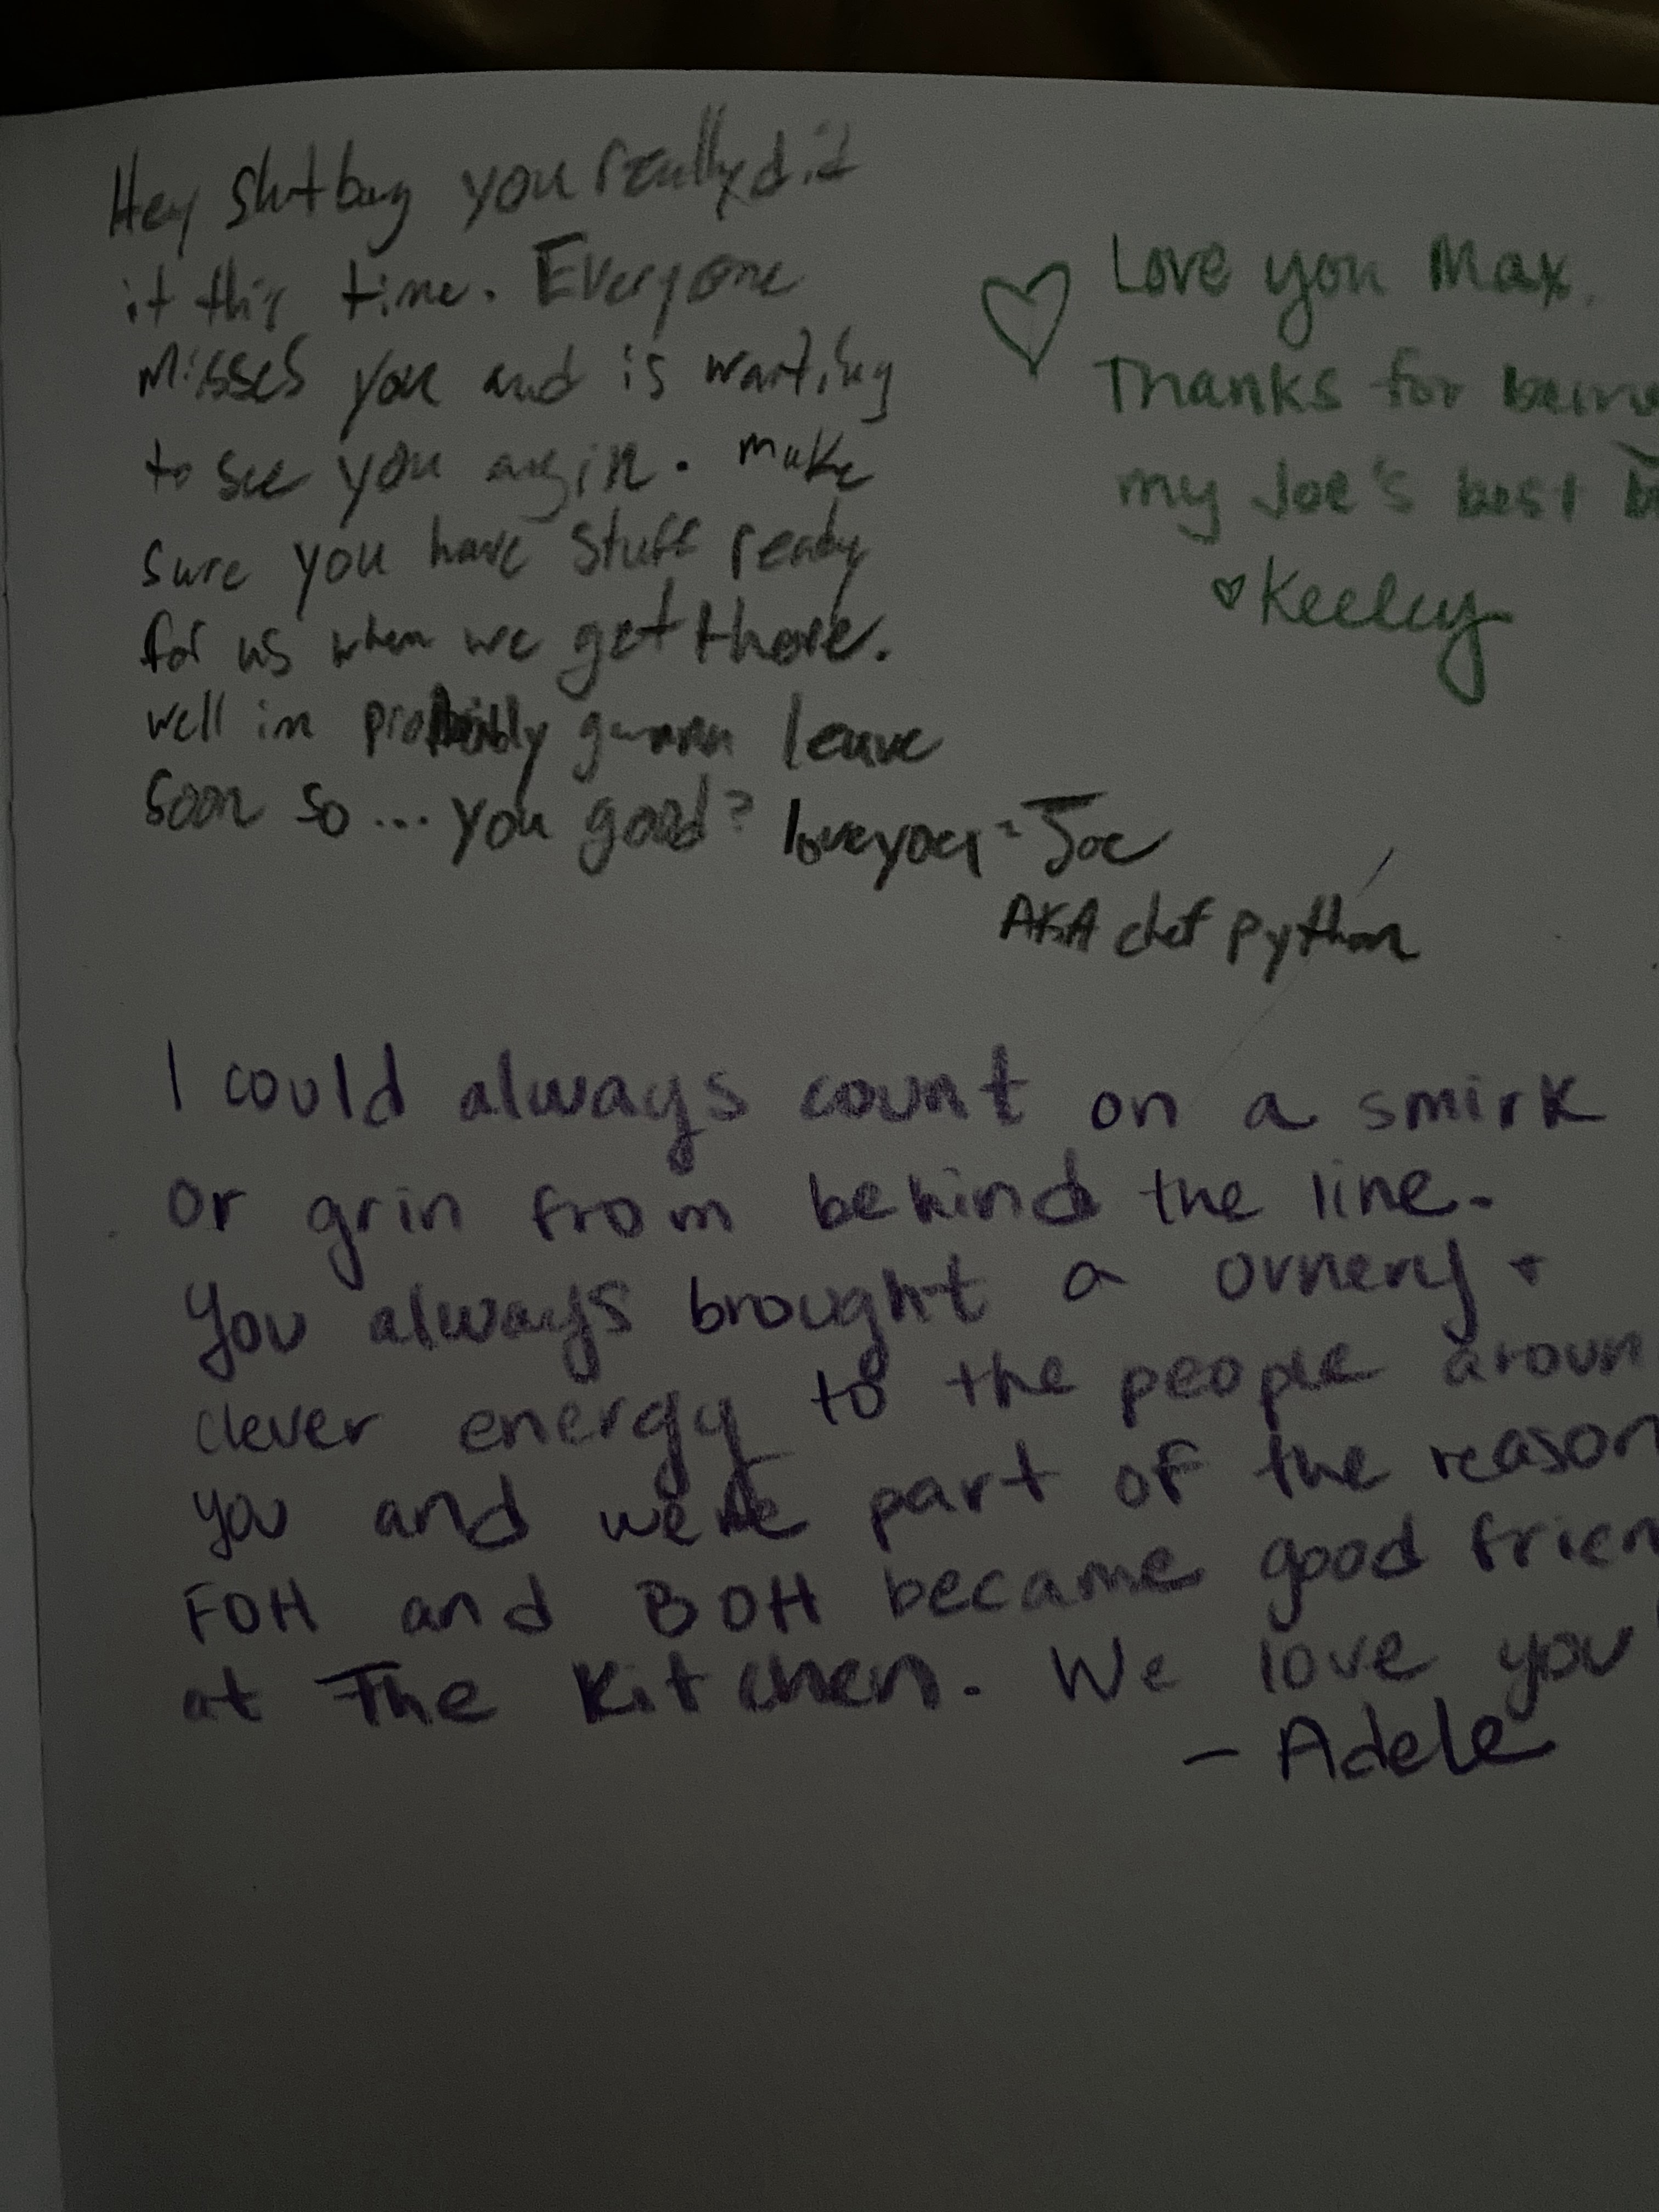 Hey slut bag you really did
it this time. Everyone
misses you and is waiting
to see you agin. make
sure you have stuff ready
for us when we get there.
well im probibly gunna leave
soon so... you good? love you - Joe
AKA chef python
Love you Max.
Thanks for being
my Joe's best
Keeley
I could always count on a smirk
or grin from behind the line.
You always brought a ornery +
clever energy to the people aroun
you and were part of the reason
FOH and BOH became good frien
at The Kitchen. We love you
- Adele